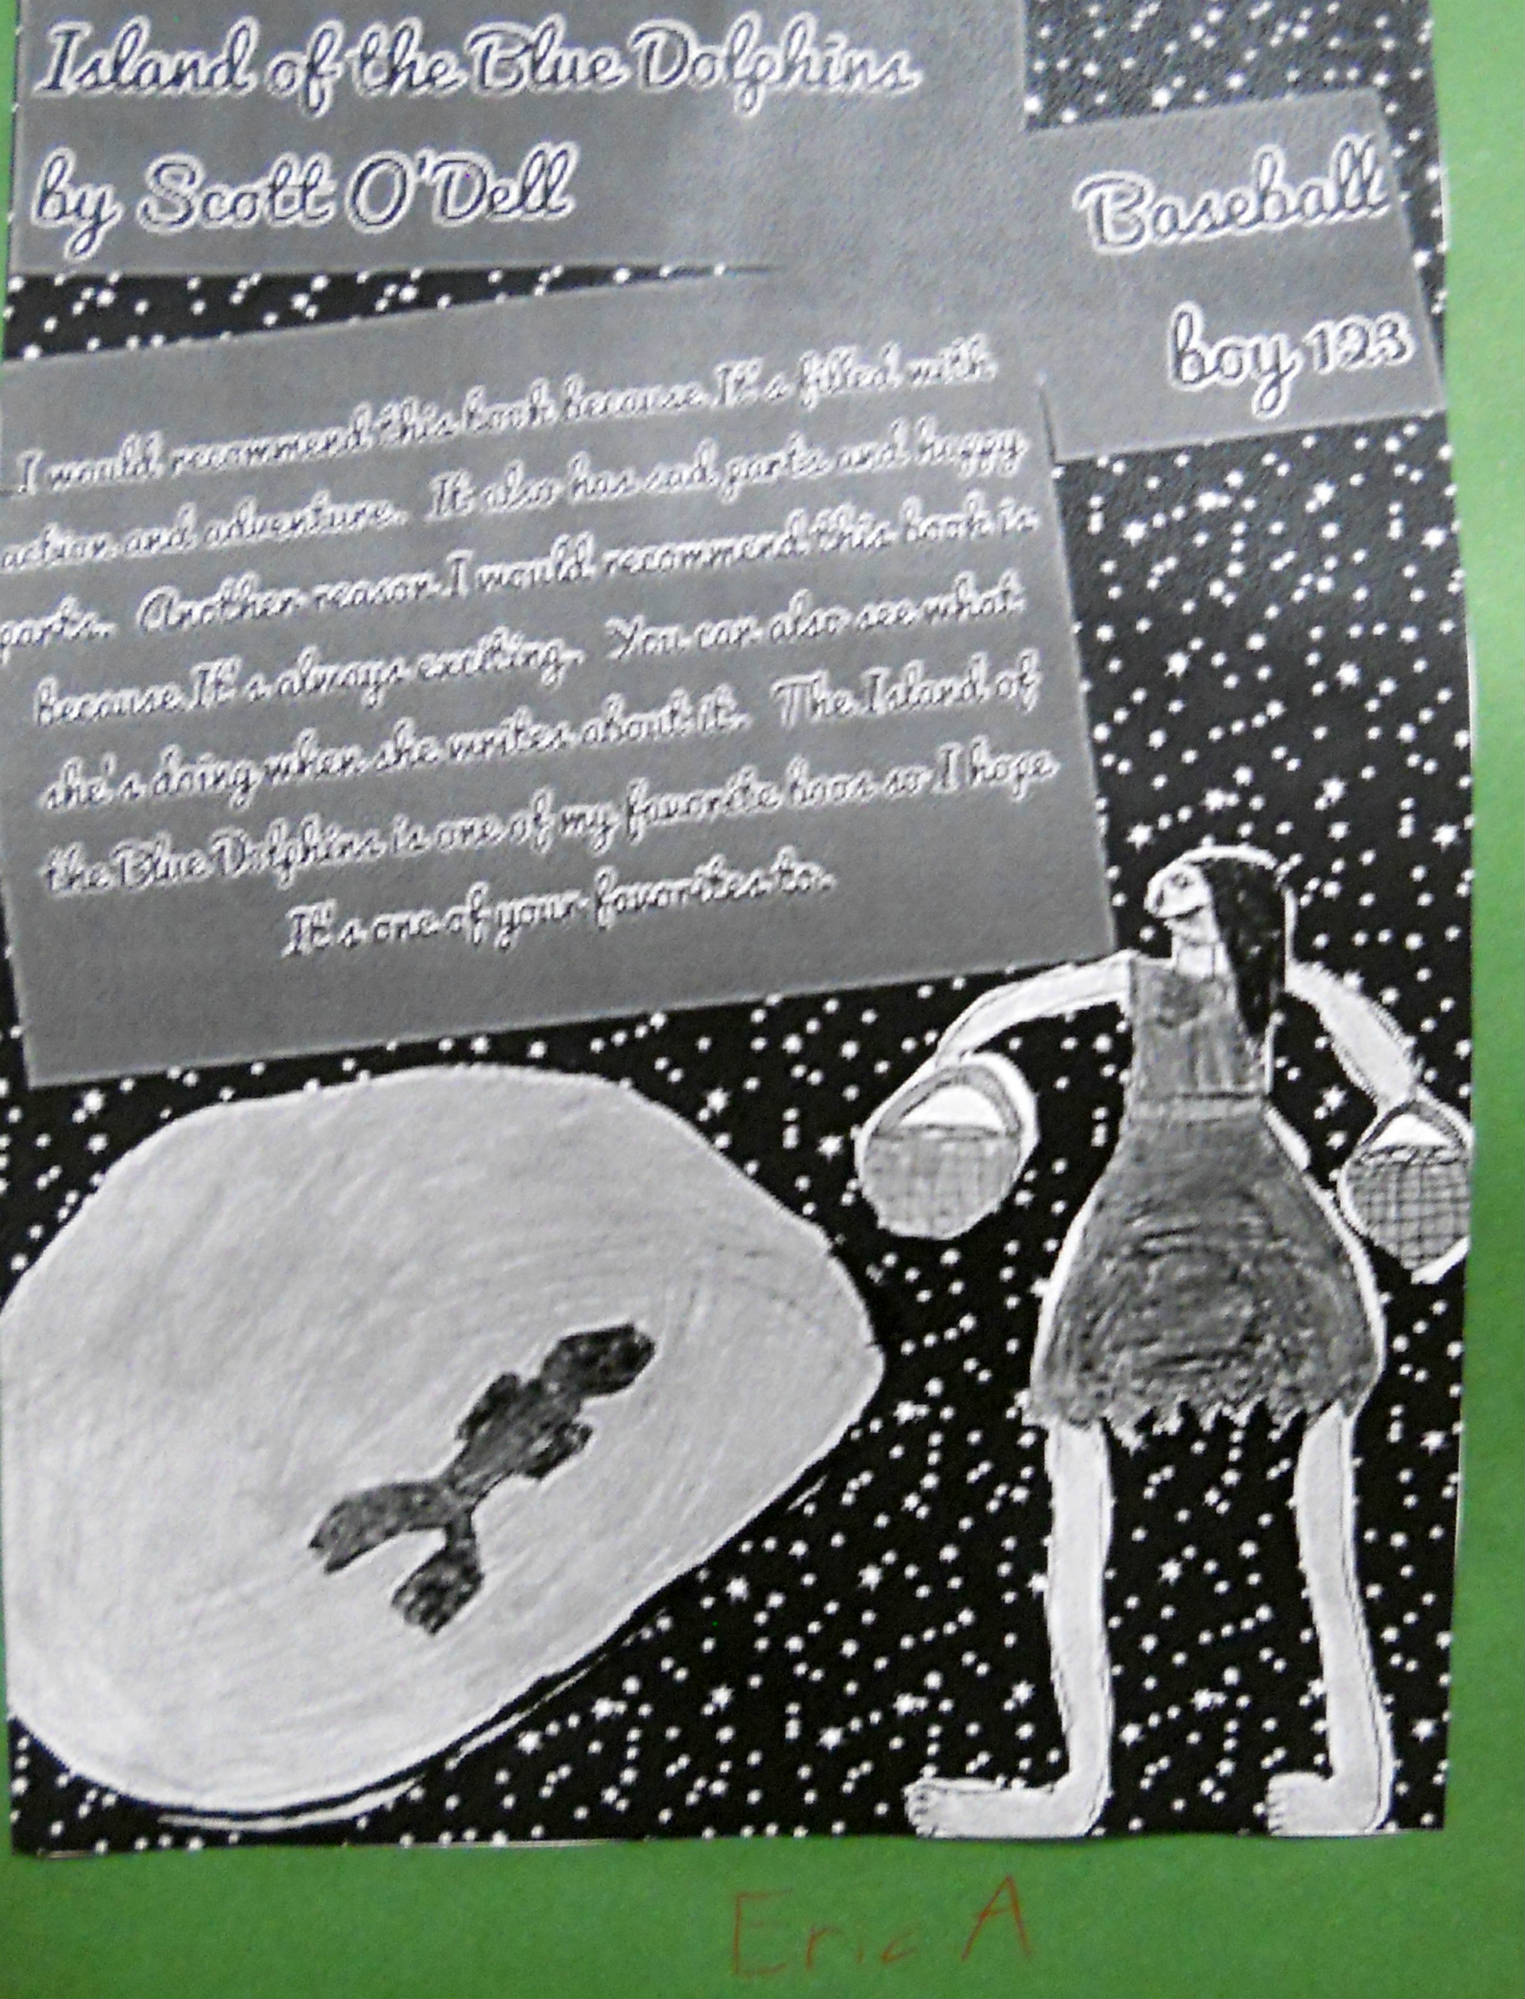 Island of the Blue Dolphins
by Scott O'Dell
Baseball
boy 123
I would recommend this book because It's filled with
action and adventure. It also has sad parts and happy
parts. Another reason I would recommend this book is
because It's always exciting. You can also see what
she's doing when she writes about it. The Island of
the Blue Dolphins is one of my favorite boos so I hope
It's one of your favorites to.
Eric A